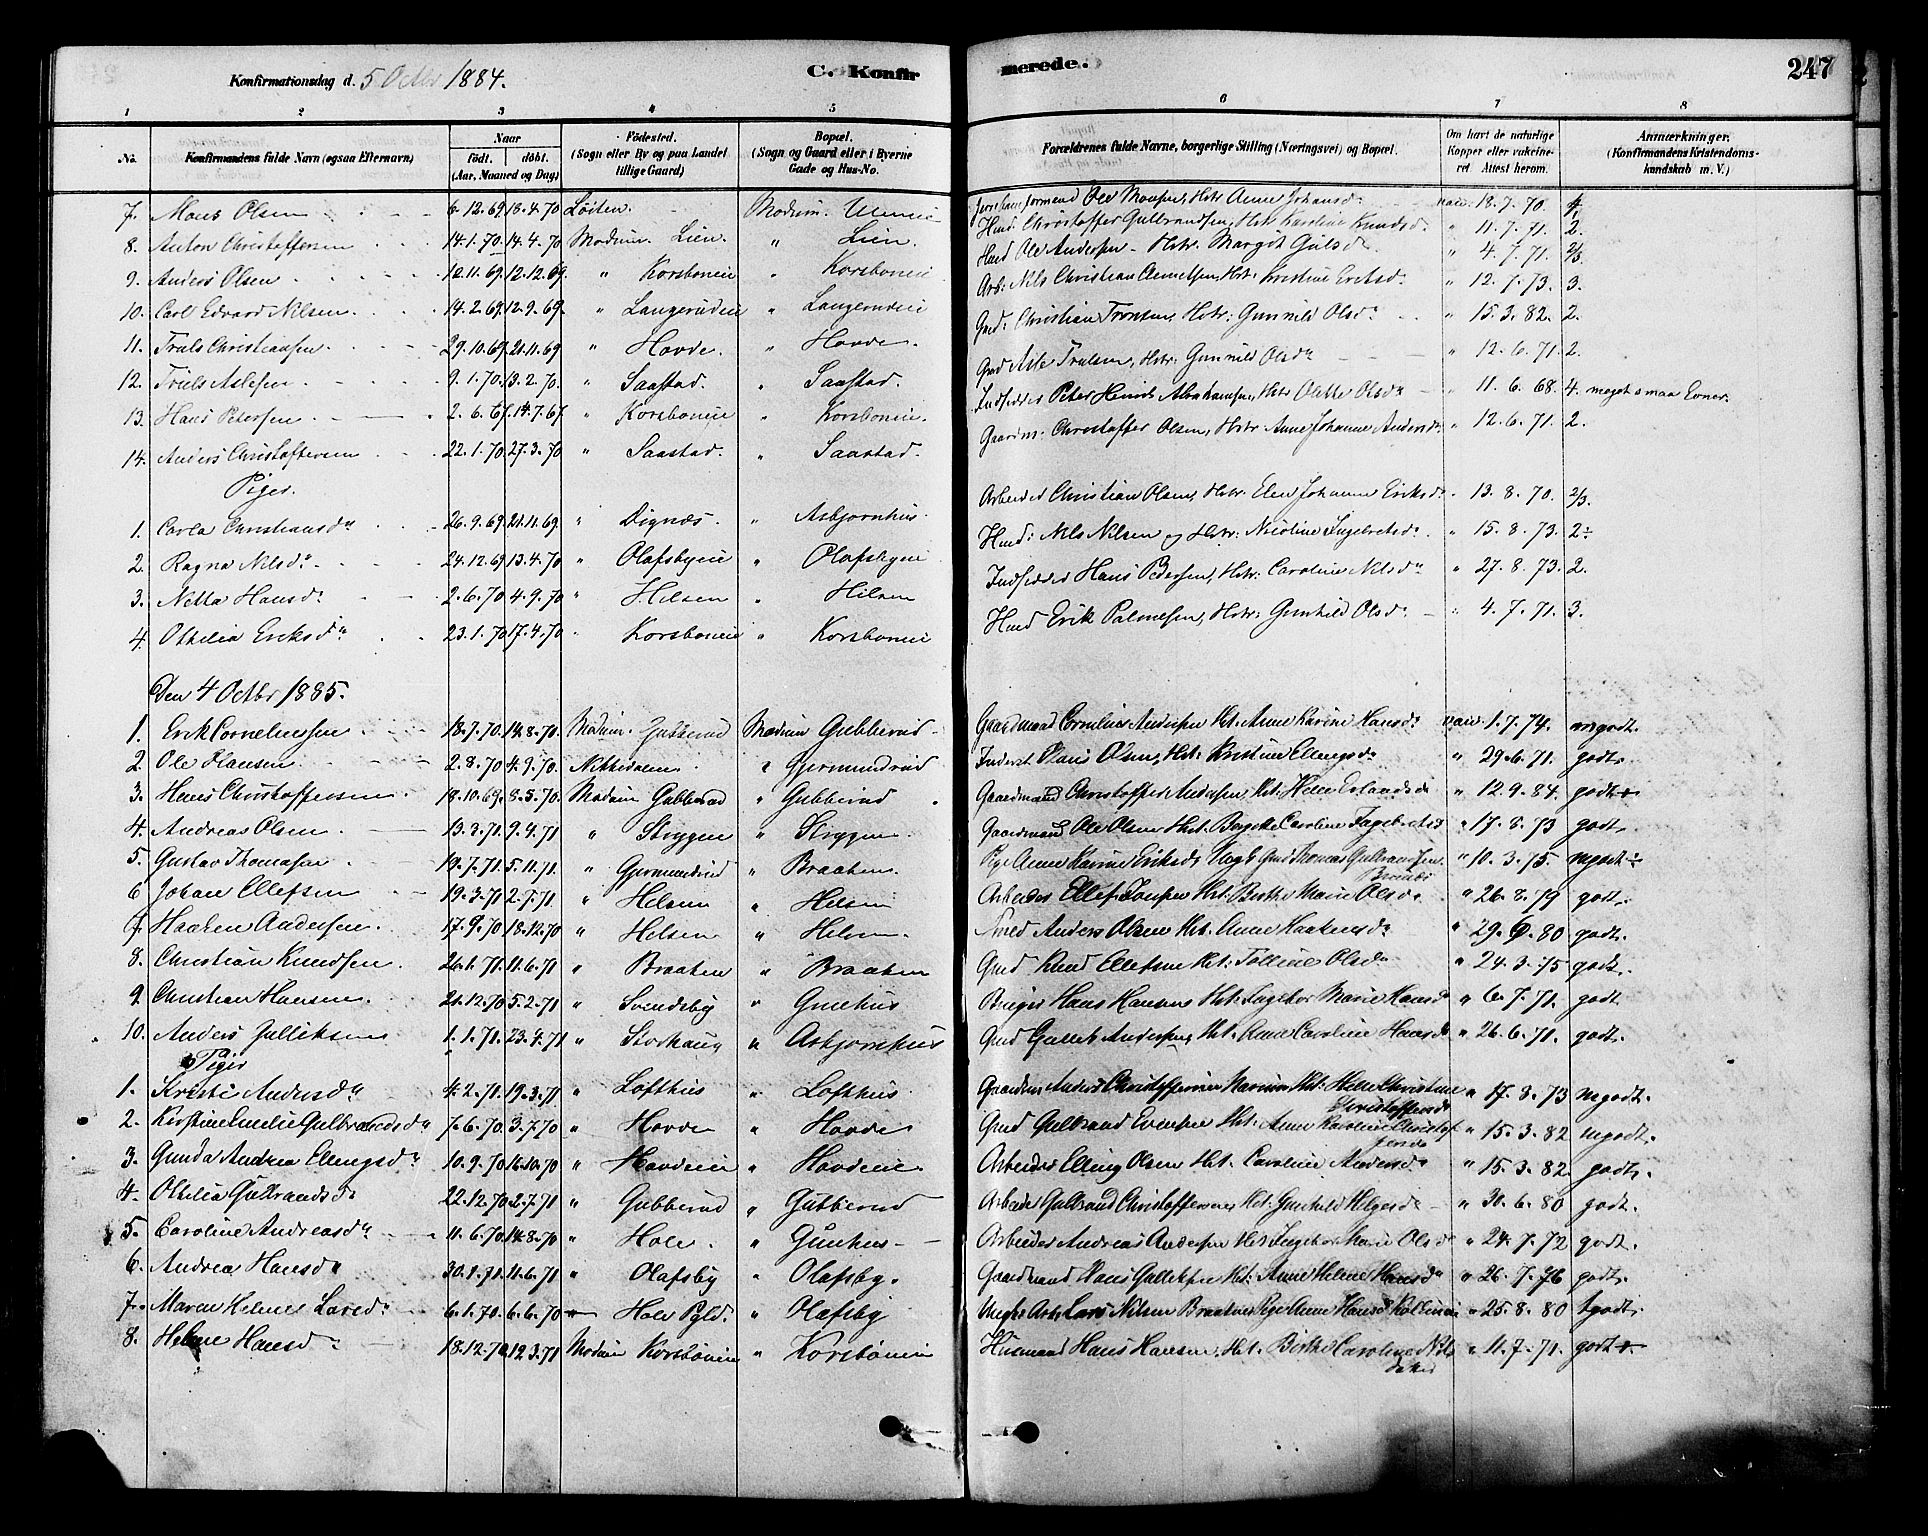 Konfirmationsdag d. 5 Octbr 1884.
C. Konfir
merede.
247
1 2 3 4 5 6 7 8
No. Konfirmandens fulde Navn (ogsaa Efternavn) Naar født. døbt. (Aar, Maaned og Dag) Fødested. (Sogn eller By og paa Landet tillige Gaard) Bopæl. (Sogn og Gaard eller i Byerne Gade og Hus-No. Forældrenes fulde Navne, borgerlige Stilling (Næringsvei) og Bopæl. Om havt de naturlige Kopper eller vakcineret. Attest herom. Anmærkninger. (Konfirmandens Kristendomskundskab m. V.)
7. Olsen 6.12.69 18.4.70 Løiten Modum. Ole Hstr Anne Johansd 18.7.70.
8. Anton Christoffersen 14.1.70. 14.4.70 Modum. Lien. " Lien. Husd Christoffer Gulbrandsen, Hstr Karoline Knudsd. " 11.7.71. 2.
9. Anders Olsen 12.12.69. " Korsboneie " Korsboneie Husd Ole Andersen - Hstr. Margit " 4.7.71. 2/3
10. Carl Edvard Nilsen. 14.2.69. 12.9.69. " Langerudeie " Langerudeie Arb: Nils Christian Hstr. Kristine Eriksd. " 12.7.73. 3.
11. Truls Christiansen. 29.10.69. 21.11.69 " Hovde. " Hovde. Gmd: Christian Tronsen, Hstr: Gunnild Olsd " 15.3.82. 2.
12. Truls Aslesen 9.1.70. 13.2.70. " Saastad. " Saastad. Gmd Asle Trulsen, Hstr. Gunnild Olsdr " 12.6.71. 2.
13. Hans Petersen 2.6.67. 14.7.67. " Korsboneie " Korsboneie. Inds Peter Abrahamsen, Hstr Olette Olsdr " 11.6.68. 4. meget smaa Evner.
14. Anders Christoffersen 22.1.70 27.3.70 " Saastad. " Saastad. Gaardm: Christoffer Olsen, Hstr. Anne Johanne Andersdr " 12.6.71. 2.
Piger.
1. Carla Christiansdr 26.9.69 21.11.69. " Dignæs. " Asbjørnhus. Arbeider Christian Olsen, Hstr. Elen Johanne Eriksdr " 13.8.70. 2/3.
2. Ragna Nilsdr 24.12.69 13.4.70 " Olafsbyeie " Olafsbyeie Husd: Nils Nilsen og Hstr: Nicoline Ingebretsdr " 15.8.73. 2÷
3. Netta Hansdr 2.6.70 4.9.70 " Hilsen " Hilsen Inds Hans Pedersen, Hstr. Caroline Nilsdr " 27.8.73. 2.
4. Othilia Eriksdr 23.1.70 17.4.70 " Korsboneie " Korsboneie Husd Erik Palmesen, Hstr: Gunhild Olsdr " 4.7.71. 3.
Den 4 Octbr 1885.
1. Erik Corneliussen 18.7.70. 14.8.70. Modum. Gubberud Modum Gubberud Gaardmand Cornelius Andersen Hst. Anne Karine Hansdr 1.7.74. mgodt.
2. Ole Hansen 2.8.70 4.9.70. Nittedalen " Gjermundrud Inderst Olsen, Hst: Kristine Ellingsdr " 29.6.71. godt.
3. Hans Christoffersen 18.10.69. 8.5.70. Modum Gubberud " Gubberud Gaardmand Christoffer Andersen, Hst: Helene Erlandsdr " 12.9.84. godt+
4. Andreas Olsen 13.3.71. 9.4.71 " Strygen " Strygen. Gaardmand Ole Olsen Hst. Caroline Ingebretsd " 17.8.73 godt.
5. Gustav Thomasen 19.7.71. 5.11.71. " Gjermundrud " Braaten. Pige Anne Karine Eriksdr Gmd Thomas Gulbrandsen " 10.3.75 mgodt÷
6 Johan Ellefsen 19.3.71 2.7.71 " Helsen " Helsen Arbeider Ellef Hst: Berthe Marie Olsdr " 26.8.79 godt.
7. Haaken Andersen 17.9.70 18.12.70 " Helsen " Helsen. Smed Anders Olsen Hst. Anne Haakensdr " 29.9.80 godt.
8. Christian Knudsen. 26.1.71. 11.6.71 " Braaten " Braaten Gmd Knud Ellefsen Hst: Olsdr " 24.3.75 godt.
9 Christian Hansen. 21.12.70 5.2.71 " Svendsby " Gunhus Hans Hansen Hst. Ingebor Marie Hansdr " 6.7.71. godt
10. Anders Gulliksen 1.1.71. 23.4.71 " Storhaug " Asbjørnhus Gmd Gullik Andersen, Hst. Anne Caroline Hansdr " 26.6.71. godt.
Piger
1. Kristi Andersdr 4.2.71. 19.3.71 " Lofthus " Lofthus. Gaardm Anders Christoffersen Hst: Helene Christine Christoffersdr " 17.8.73 mgodt.
2. Kirstine Emelie Gulbrandsdr 7.6.70 3.7.70 " Hovde " Hovde Gmd Gulbrand Evensen Hst: Anne Karoline Christoffersdr " 15.3.82 mgodt.
3. Gunda Andrea Ellingsdr 10.9.70 16.10.70 " Hovdeeie " Hovdeeie Arbeider Elling Olsen Hst. Caroline Andersdr " 15.3.82. godt.
4. Othilia Gulbrandsdr 22.12.70 2.7.71 " Gubberud " Gubberud Arbeider Gulbrand Christoffersen Hst: Gunhild Helgesdr " 30.6.80 godt.
5. Caroline Andreasdr 11.6.70 14.8.70 " Hole. " Gunhus Arbeider Andreas Andersen Hst Ingebor Marie Olsdr " 24.7.72 godt.
6. Andrea Hansdr 30.1.71. 11.6.71 " Olafsby " Olafsby. Gaardmand Hans Gulliksen Hst: Anne Helene Hansdr " 26.7.76 godt.
7. Maren Helene Larsdr 6.1.70. 6.6.70 Hole Pgld. " Olafsby Ungk. Arb. Lars Nilsen Braaten Pige Anne Hansd " 25.8.80 tgodt.
8. Helene Hansdr 18.12.70 12.3.71 Modum Korsbøneie " Korsbøneie Husmand Hans Hansen, Hst. Berthe Caroline " 11.7.71. godt+.